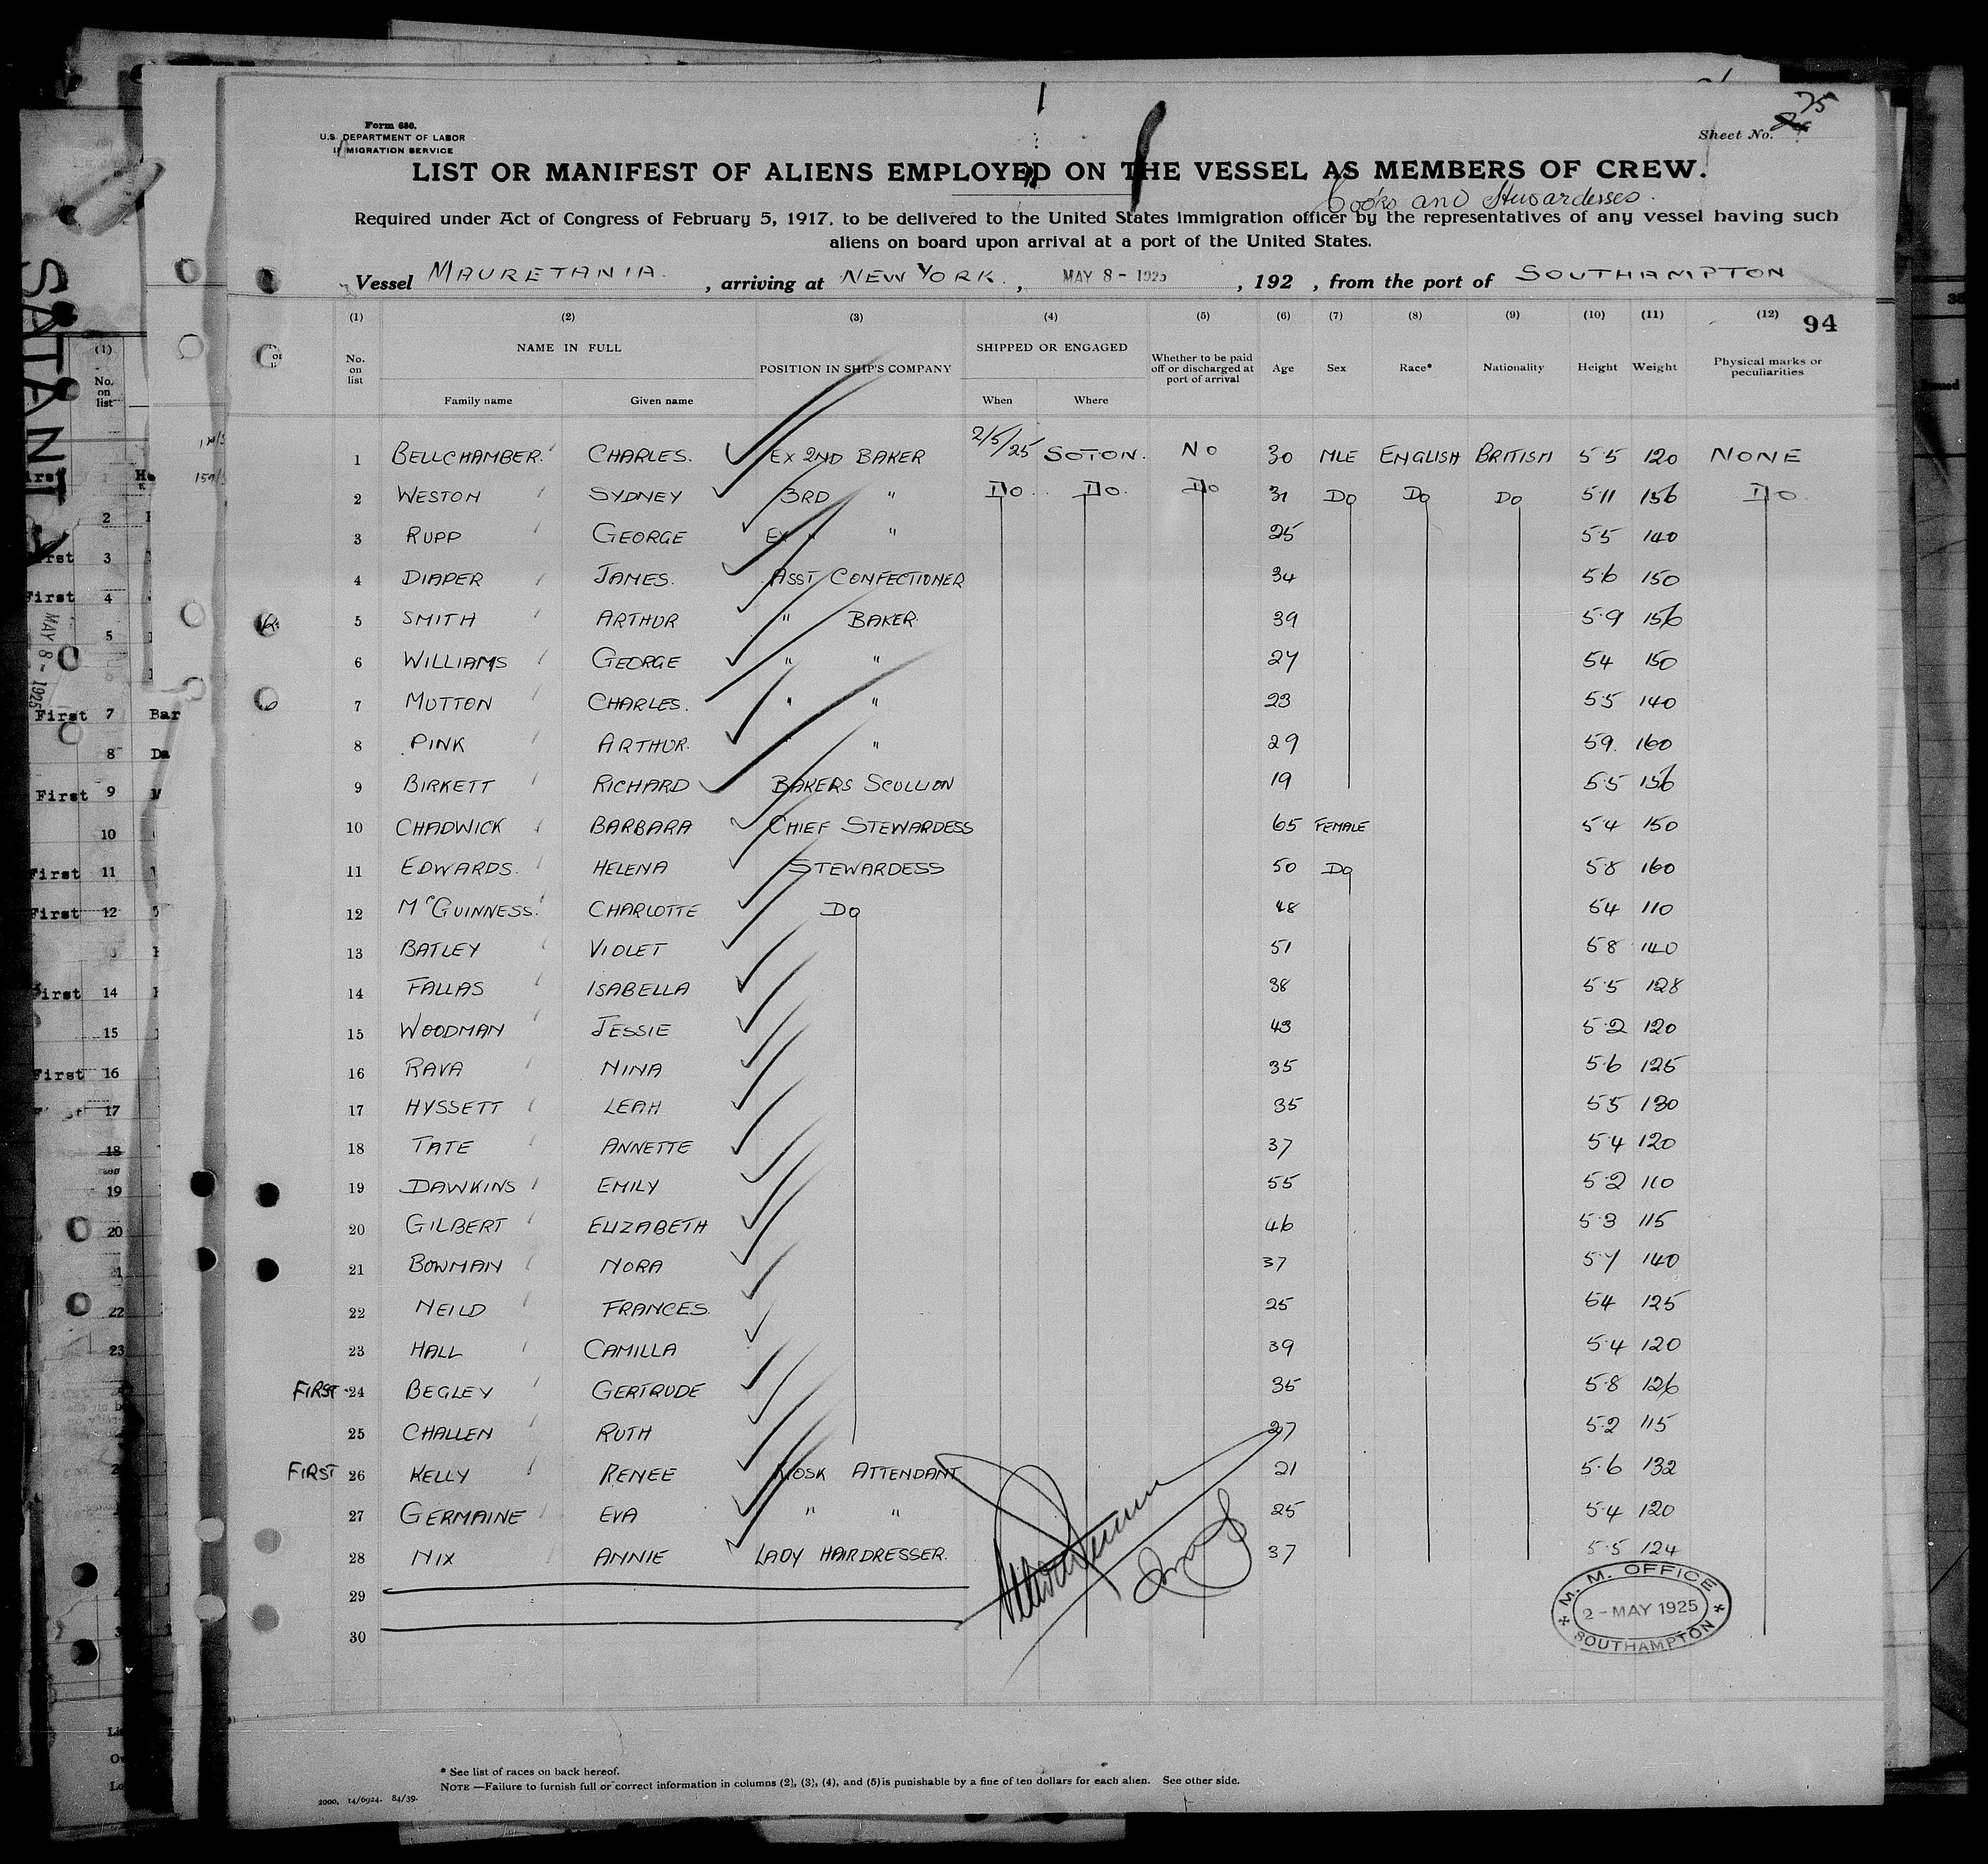 Form 680.
U.S. DEPARTMENT OF LABOR
IMMIGRATION SERVICE
Sheet No. 75
LIST OR MANIFEST OF ALIENS EMPLOYED ON THE VESSEL AS MEMBERS OF CREW.
Cooks and Stewardesses.
Required under Act of Congress of February 5, 1917, to be delivered to the United States immigration officer by the representatives of any vessel having such
aliens on board upon arrival at a port of the United States.
Vessel MAURETANIA. , arriving at NEW YORK. , MAY 8 - 1925 , 192 , from the port of SOUTHAMPTON
(1) (2) (3) (4) (5) (6) (7) (8) (9) (10) (11) (12) 94
No. on list NAME IN FULL Family name Given name POSITION IN SHIP'S COMPANY SHIPPED OR ENGAGED When Where Whether to be paid off or discharged at port of arrival Age Sex Race* Nationality Height Weight Physical marks or peculiarities
1 BELLCHAMBER. CHARLES. EX 2ND BAKER 2/5/25 SOTON. NO 30 MLE ENGLISH BRITISH 5 5 120 NONE
2 WESTON SYDNEY 3RD " DO. DO. DO 31 DO DO DO 5 11 156 DO.
3 RUPP GEORGE EX " " 25 5 5 140
4 DIAPER JAMES. ASST CONFECTIONER 34 5 6 150
5 SMITH ARTHUR " BAKER. 39 5·9 156
6 WILLIAMS GEORGE " " 27 5 4 150
7 MUTTON CHARLES. " " 23 5 5 140
8 PINK ARTHUR. " " 29 5 9. 160
9 BIRKETT RICHARD BAKERS SCULLION 19 5·5 156
10 CHADWICK BARBARA CHIEF STEWARDESS 65 FEMALE 5 4 150
11 EDWARDS. HELENA STEWARDESS 50 DO 5·8 160
12 McGUINNESS. CHARLOTTE DO 48 5 4 110
13 BATLEY VIOLET 51 5 8 140
14 FALLAS ISABELLA 38 5·5 128
15 WOODMAN JESSIE 43 5·2 120
16 RAVA NINA 35 5·6 125
17 HYSSETT LEAH 35 5 5 130
18 TATE ANNETTE 37 5·4 120
19 DAWKINS EMILY 55 5·2 110
20 GILBERT ELIZABETH 46 5·3 115
21 BOWMAN NORA 37 5·7 140
22 NEILD FRANCES. 25 5 4 125
23 HALL CAMILLA 39 5·4 120
FIRST 24 BEGLEY GERTRUDE 35 5·8 126
25 CHALLEN RUTH 27 5·2 115
FIRST 26 KELLY RENEE KIOSK ATTENDANT 21 5·6 132
27 GERMAINE EVA " " 25 5·4 120
28 NIX ANNIE LADY HAIRDRESSER. 37 5·5 124
29
30
M. M. OFFICE
2 - MAY 1925
SOUTHAMPTON
* See list of races on back hereof.
NOTE —Failure to furnish full or correct information in columns (2), (3), (4), and (5) is punishable by a fine of ten dollars for each alien. See other side.
2000. 14/6924. 84/39.
SATANTA
MAY 8 - 1925
(1)
No. on list
2
First 3
First 4
5
First 7 Bar
8 Da
First 9
10
First 11
First 12
First 14
15
First 16
17
18
19
20
21
22
23